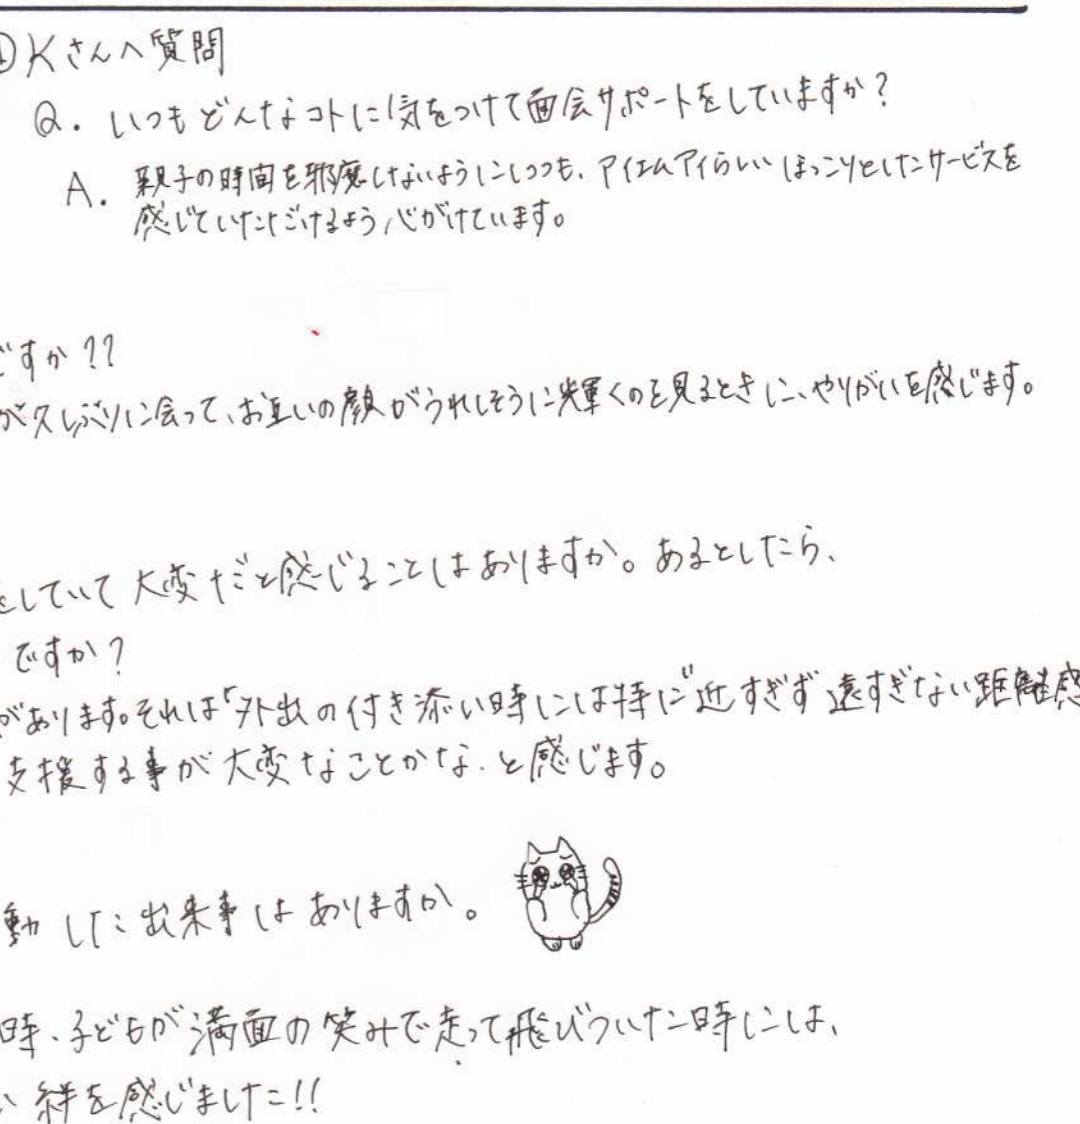 ①Kさんへ質問
Q. いつもどんなコトに気をつけて面会サポートをしていますか?
A. 親子の時間を邪魔しないようにしつつも、アイエムアイらしいほっこりとしたサービスを
感じていただけるよう心がけています。
ですか??
が久しぶりに会って、お互いの顔がうれしそうに輝くのを見るときに、やりがいを感じます。
をしていて大変だと感じることはありますか。あるとしたら、
ですか?
があります。それは「外出の付き添い時には特に近すぎず遠すぎない距離感
支援する事が大変なことかな、と感じます。
動した出来事はありますか。
時、子どもが満面の笑みで走って飛びついた時には、
い絆を感じました!!